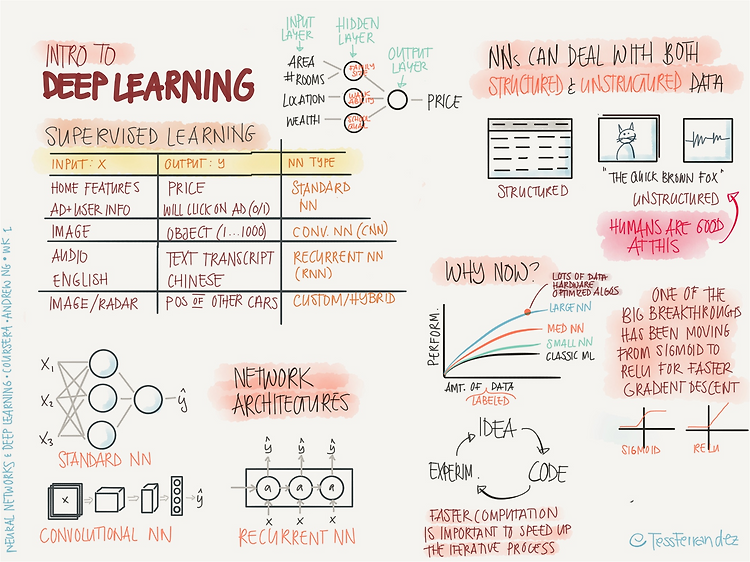 INTRO TO
DEEP LEARNING
INPUT LAYER
HIDDEN LAYER
OUTPUT LAYER
AREA
# ROOMS
LOCATION
WEALTH
FAMILY SIZE
WALK ABILITY
SCHOOL QUAL
PRICE
SUPERVISED LEARNING
INPUT: X OUTPUT: Y NN TYPE
HOME FEATURES PRICE STANDARD
AD+USER INFO WILL CLICK ON AD (0/1) NN
IMAGE OBJECT (1...1000) CONV. NN (CNN)
AUDIO TEXT TRANSCRIPT RECURRENT NN
ENGLISH CHINESE (RNN)
IMAGE/RADAR POS OF OTHER CARS CUSTOM/HYBRID
X1
X2
X3
ŷ
STANDARD NN
X
ŷ
CONVOLUTIONAL NN
NETWORK
ARCHITECTURES
ŷ ŷ ŷ
a a a
RECURRENT NN
NNs CAN DEAL WITH BOTH
STRUCTURED & UNSTRUCTURED DATA
STRUCTURED
"THE QUICK BROWN FOX"
UNSTRUCTURED
HUMANS ARE GOOD
AT THIS
WHY NOW?
LOTS OF DATA
HARDWARE
OPTIMIZED ALGOS
LARGE NN
MED NN
SMALL NN
CLASSIC ML
PERFORM.
AMT. OF DATA
LABELED
IDEA
CODE
EXPERIM.
FASTER COMPUTATION
IS IMPORTANT TO SPEED UP
THE ITERATIVE PROCESS
ONE OF THE
BIG BREAKTHROUGHS
HAS BEEN MOVING
FROM SIGMOID TO
RELU FOR FASTER
GRADIENT DESCENT
SIGMOID
RELU
NEURAL NETWORKS & DEEP LEARNING • COURSERA • ANDREW NG • WK 1
@TessFerrandez